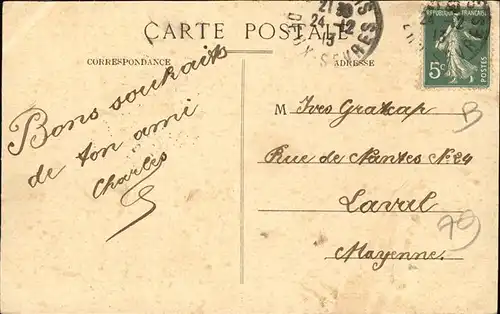 CARTE POSTALE
CORRESPONDANCE
ADRESSE
21 30
24 - 12
13
DEUX-SEVRES
RÉPUBLIQUE FRANÇAISE
5c
Bons souhaits
de ton ami
Charles
M Yves Gratcap
Rue de Nantes N. 24
Laval
Mayenne.
B
79